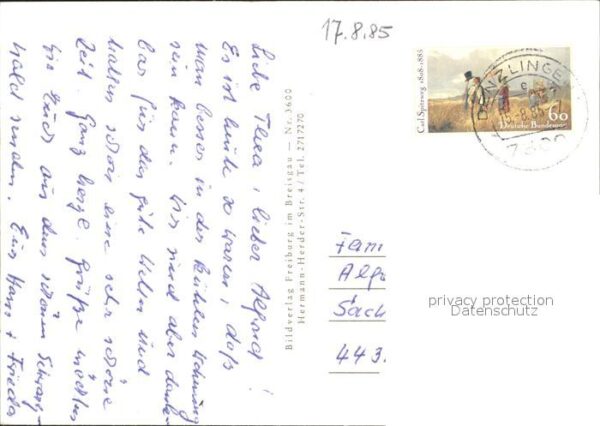 17.8.85
Liebe Thea, lieber Alfred!
Es ist heute so warm, daß
man besser in der kühlen Wohnung
sein kann. Wir sind aber dank-
bar für das gute Wetter und
hatten schon eine sehr schöne
Zeit. Ganz herzl. Grüße möchten
wir Euch aus dem schönen Schwarz-
wald senden. Eure Hans + Frieda
Bildverlag Freiburg im Breisgau — Nr. 3600
Hermann-Herder-Str. 4 / Tel. 2717270
Carl Spitzweg 1808-1885
60
Deutsche Bundespost
DENZLINGEN
Fam
Alf
Sack
443.
privacy protection
Datenschutz